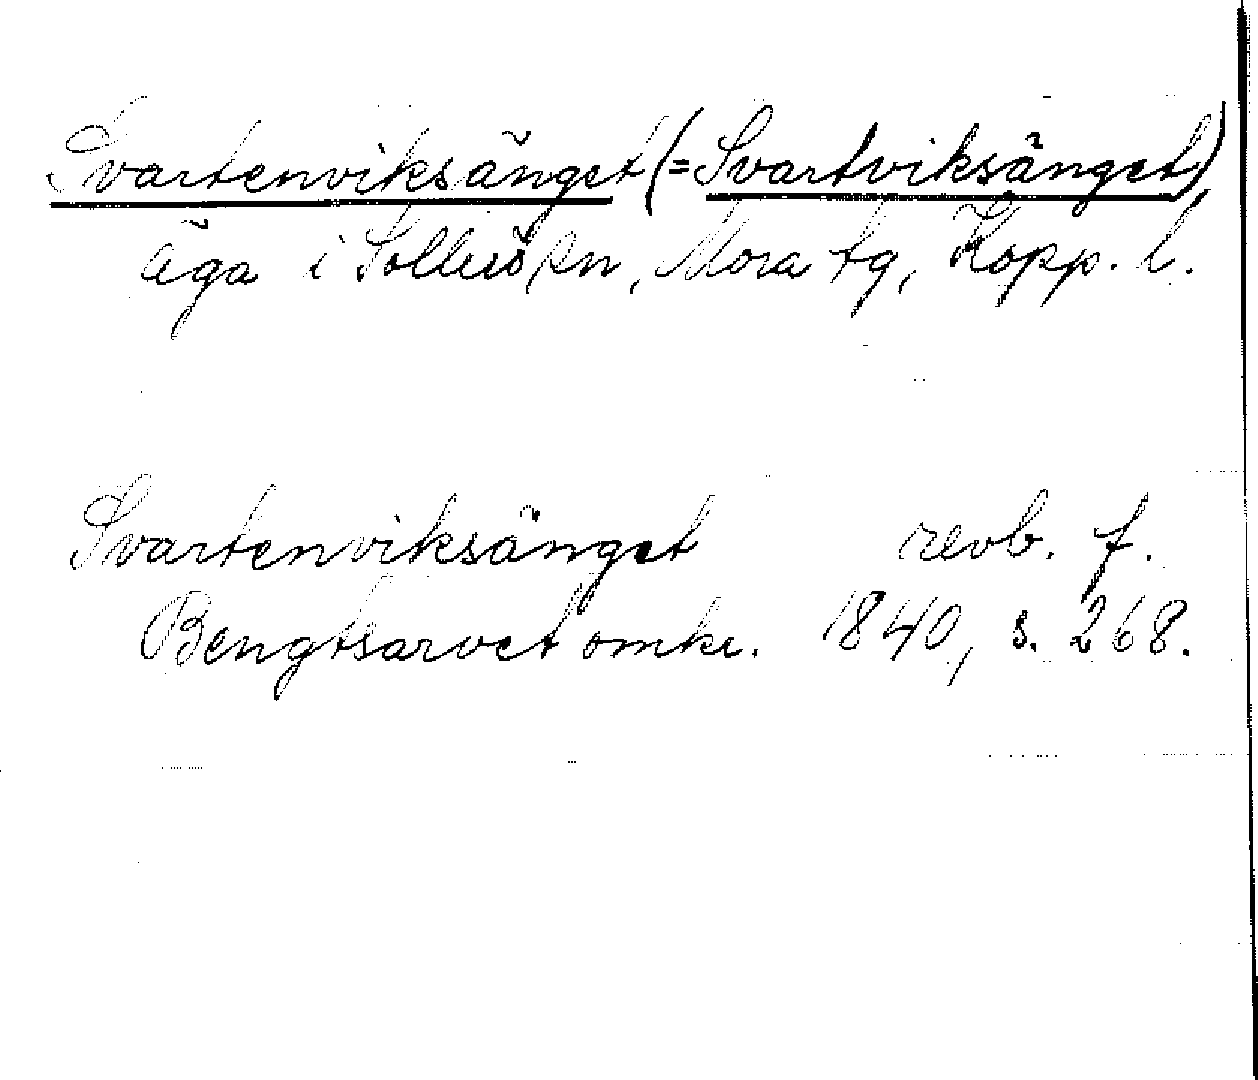 Svartenviksänget (= Svartviksänget)
äga i Sollerö sn, Mora tg, Kopp. l.
Svartenviksänget revb. f.
Bengtsarvet omkr. 1840, s. 268.